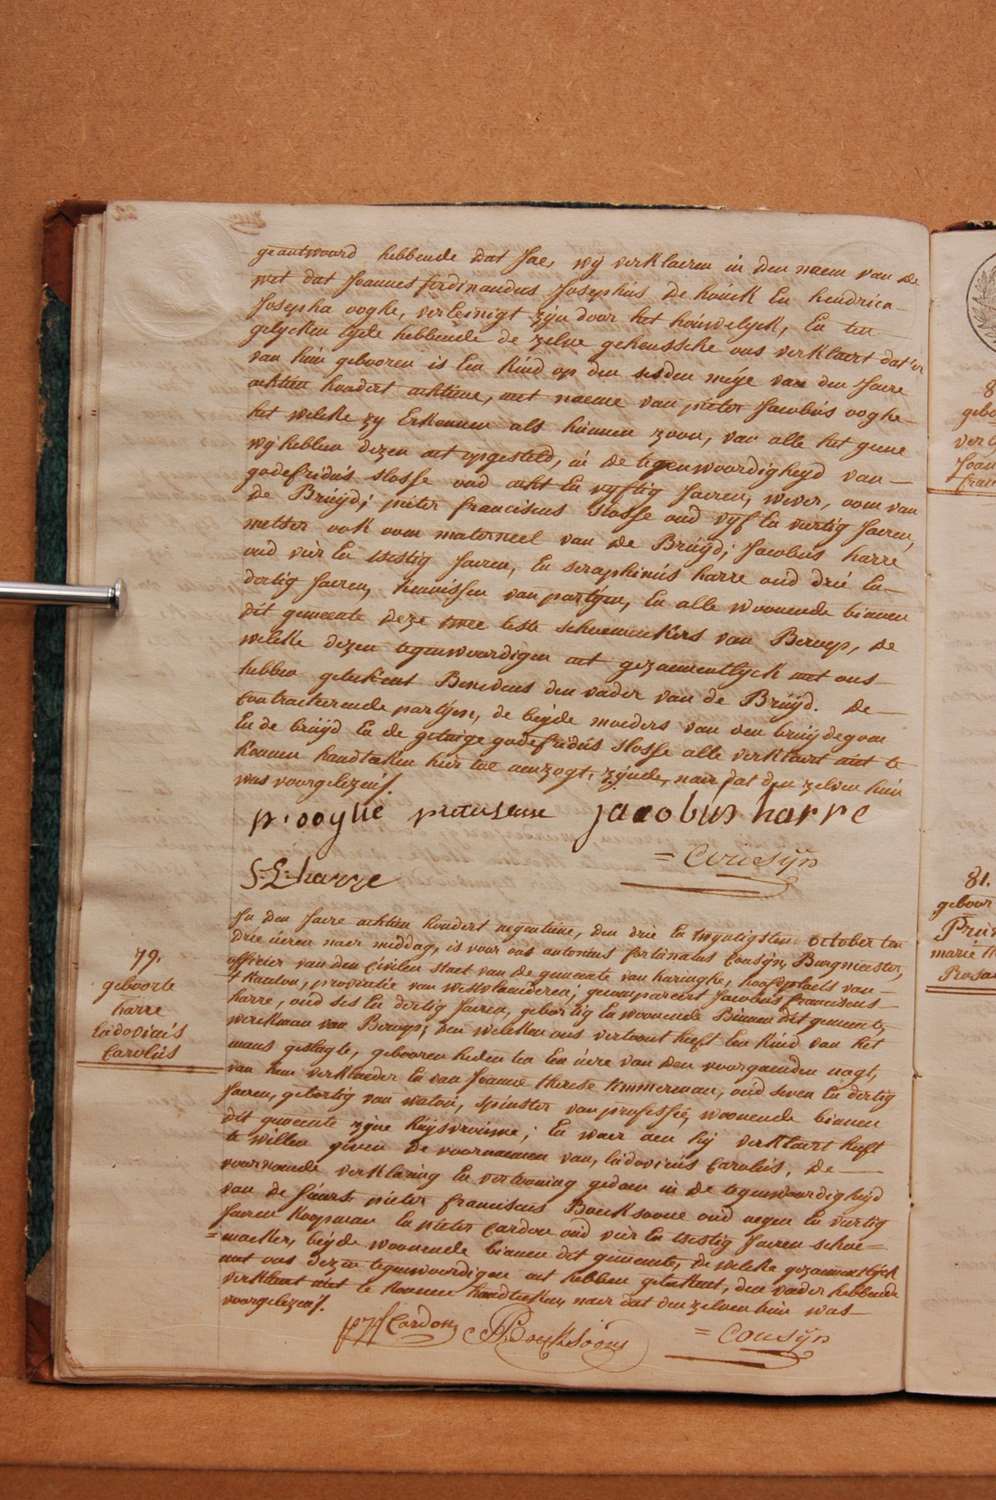 geantwoord hebbende dat Jae, wÿ verklaeren in den naem van de
wet dat Joannes ferdinandus Josephús De houck En hendrica
Josepha ooghe, vereenigt zÿn door het húwelÿck, En ten
gelÿcken tÿde hebbende de zelve geheussche ons verklaert dat'er
van hún gebooren is Een kind op den sesden meÿe van den Jaere
achtien hondert achtiene, met naeme van pieter Jacobús ooghe
het welke zÿ Erkennen als húnnen zoon, van alle het gene
wÿ hebben dezen act opgesteld, in de tegenwoordigheÿd van
godefridús slosse oud acht En vÿftig Jaeren, wever, oom van
de Brúÿd; pieter franciscus Slosse oud vÿf En viertig Jaeren,
metser ook oom materneel van de Brúÿd; Jacobus harre
oud vier En tsestig Jaeren, En seraphinús harre oud drie En
dertig Jaeren, kennissen van partÿen, En alle woonende binnen
dit gemeente deze twee leste schoenmakers van Beroep, de
welke dezen tegenwoordigen act gezaementlÿck met ons
hebben geteekent Benevens den vader van de Brúÿd. De
Contracteerende partÿen, de beÿde moeders van den bruÿdegom
En de brúÿd En de getúige godefridús slosse alle verklaert niet te
konnen handteeken hier toe aenzogt, zÿnde, naer dat den zelven hún
was voorgelezen /.
p. ooghe pieter slosse jacobus harre
= Coúsÿn
S. L. harre
79.
geboorte
harre
Lúdovicús
Carolús
In den Jaere achtien hondert negentiene, den drie En twÿntigsten october ten
drie úeren naer middag, is voor ons antonius fortúnatus Cousÿn, Burgmeester,
officier van den Civilen staet van de gemeente van haringhe, hoofdplaets van
't kanton, provintie van westvlaenderen; gecompareert Jacobús franciscus
harre, oud ses En dertig Jaeren, gebortig En woonende Binnen dit gemeente,
werkman van Beroep; den welcken ons vertoont heeft Een kind van het
mans geslagte, gebooren heden ten Een úere van den voorgaenden nagt,
van hem verklaeder En van Joanne therese timmerman, oúd seven En dertig
Jaeren, gebortig van watoú, spinster van professie, woonende binnen
dit gemeente zÿne húÿsvroúwe; En waer aen hÿ verklaert heeft
te willen geven de voornaemen van, Lúdovicús Carolús, De
voornoemde verklaring En vertooning gedaen in de tegenwoordigheÿd
van de Siúrs pieter franciscus Boucksoone oud negen En viertig
Jaeren koopman En pieter Cardon oúd vier En tsestig Jaeren schoe=
=macker, beÿde woonende binnen dit gemeente, de welcke gezaementlÿck
met ons dezen tegenwoordigen act hebben geteekent, den vader hebbende
verklaert niet te konnen handteeken, naer dat den zelven hún was
voorgelezen /.
Cardon Boucksoone = Coúsÿn
81.
geboor
marie
Rosa